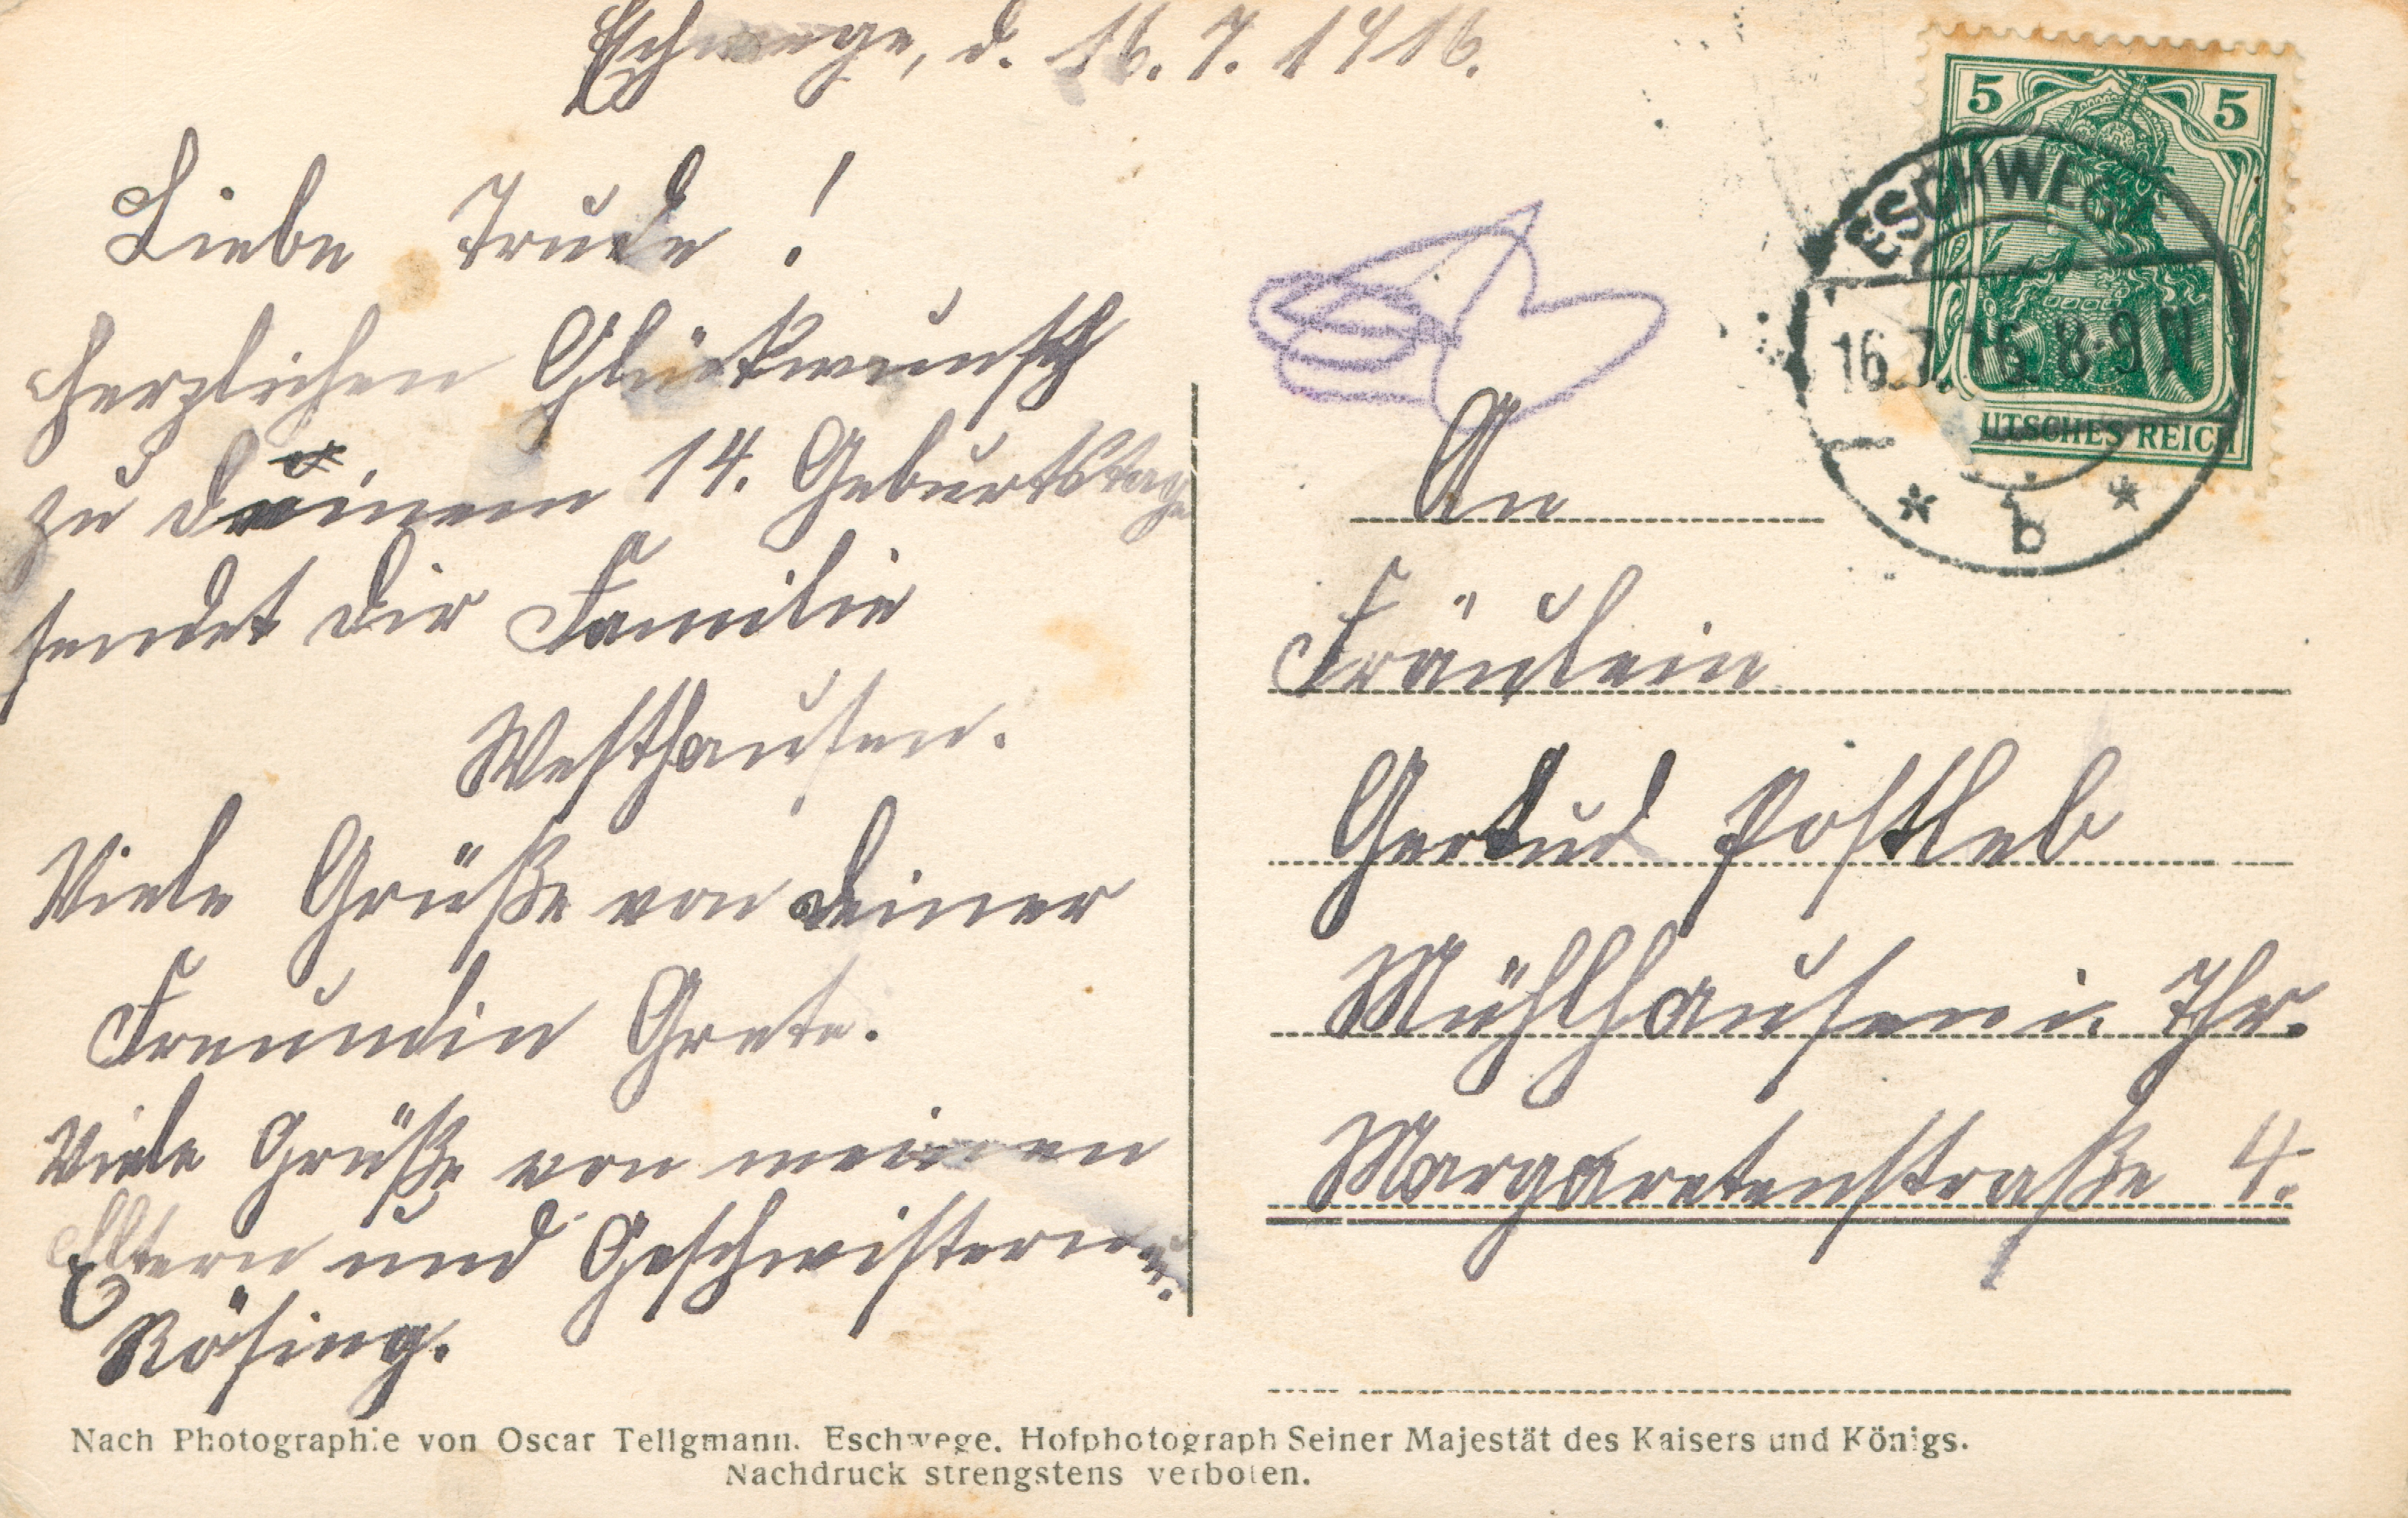 Eschwege, d. 16. 7. 1916.
Liebe Trude!
Herzlichen Glückwunsch
zu deinem 14. Geburtstage
sendet dir Familie
Westhausen.
Viele Grüße von deiner
Freundin Grete.
Viele Grüße von meinen
Eltern und Geschwistern
Rösing.
5 5
ESCHWEGE
16.7.16. 8-9 N
* b *
UTSCHES REICH
An
Fräulein
Gertud Postleb
Mühlhausen i. Thr.
Margaretenstraße 4.
Nach Photographie von Oscar Tellgmann. Eschwege. Hofphotograph Seiner Majestät des Kaisers und Königs.
Nachdruck strengstens verboten.